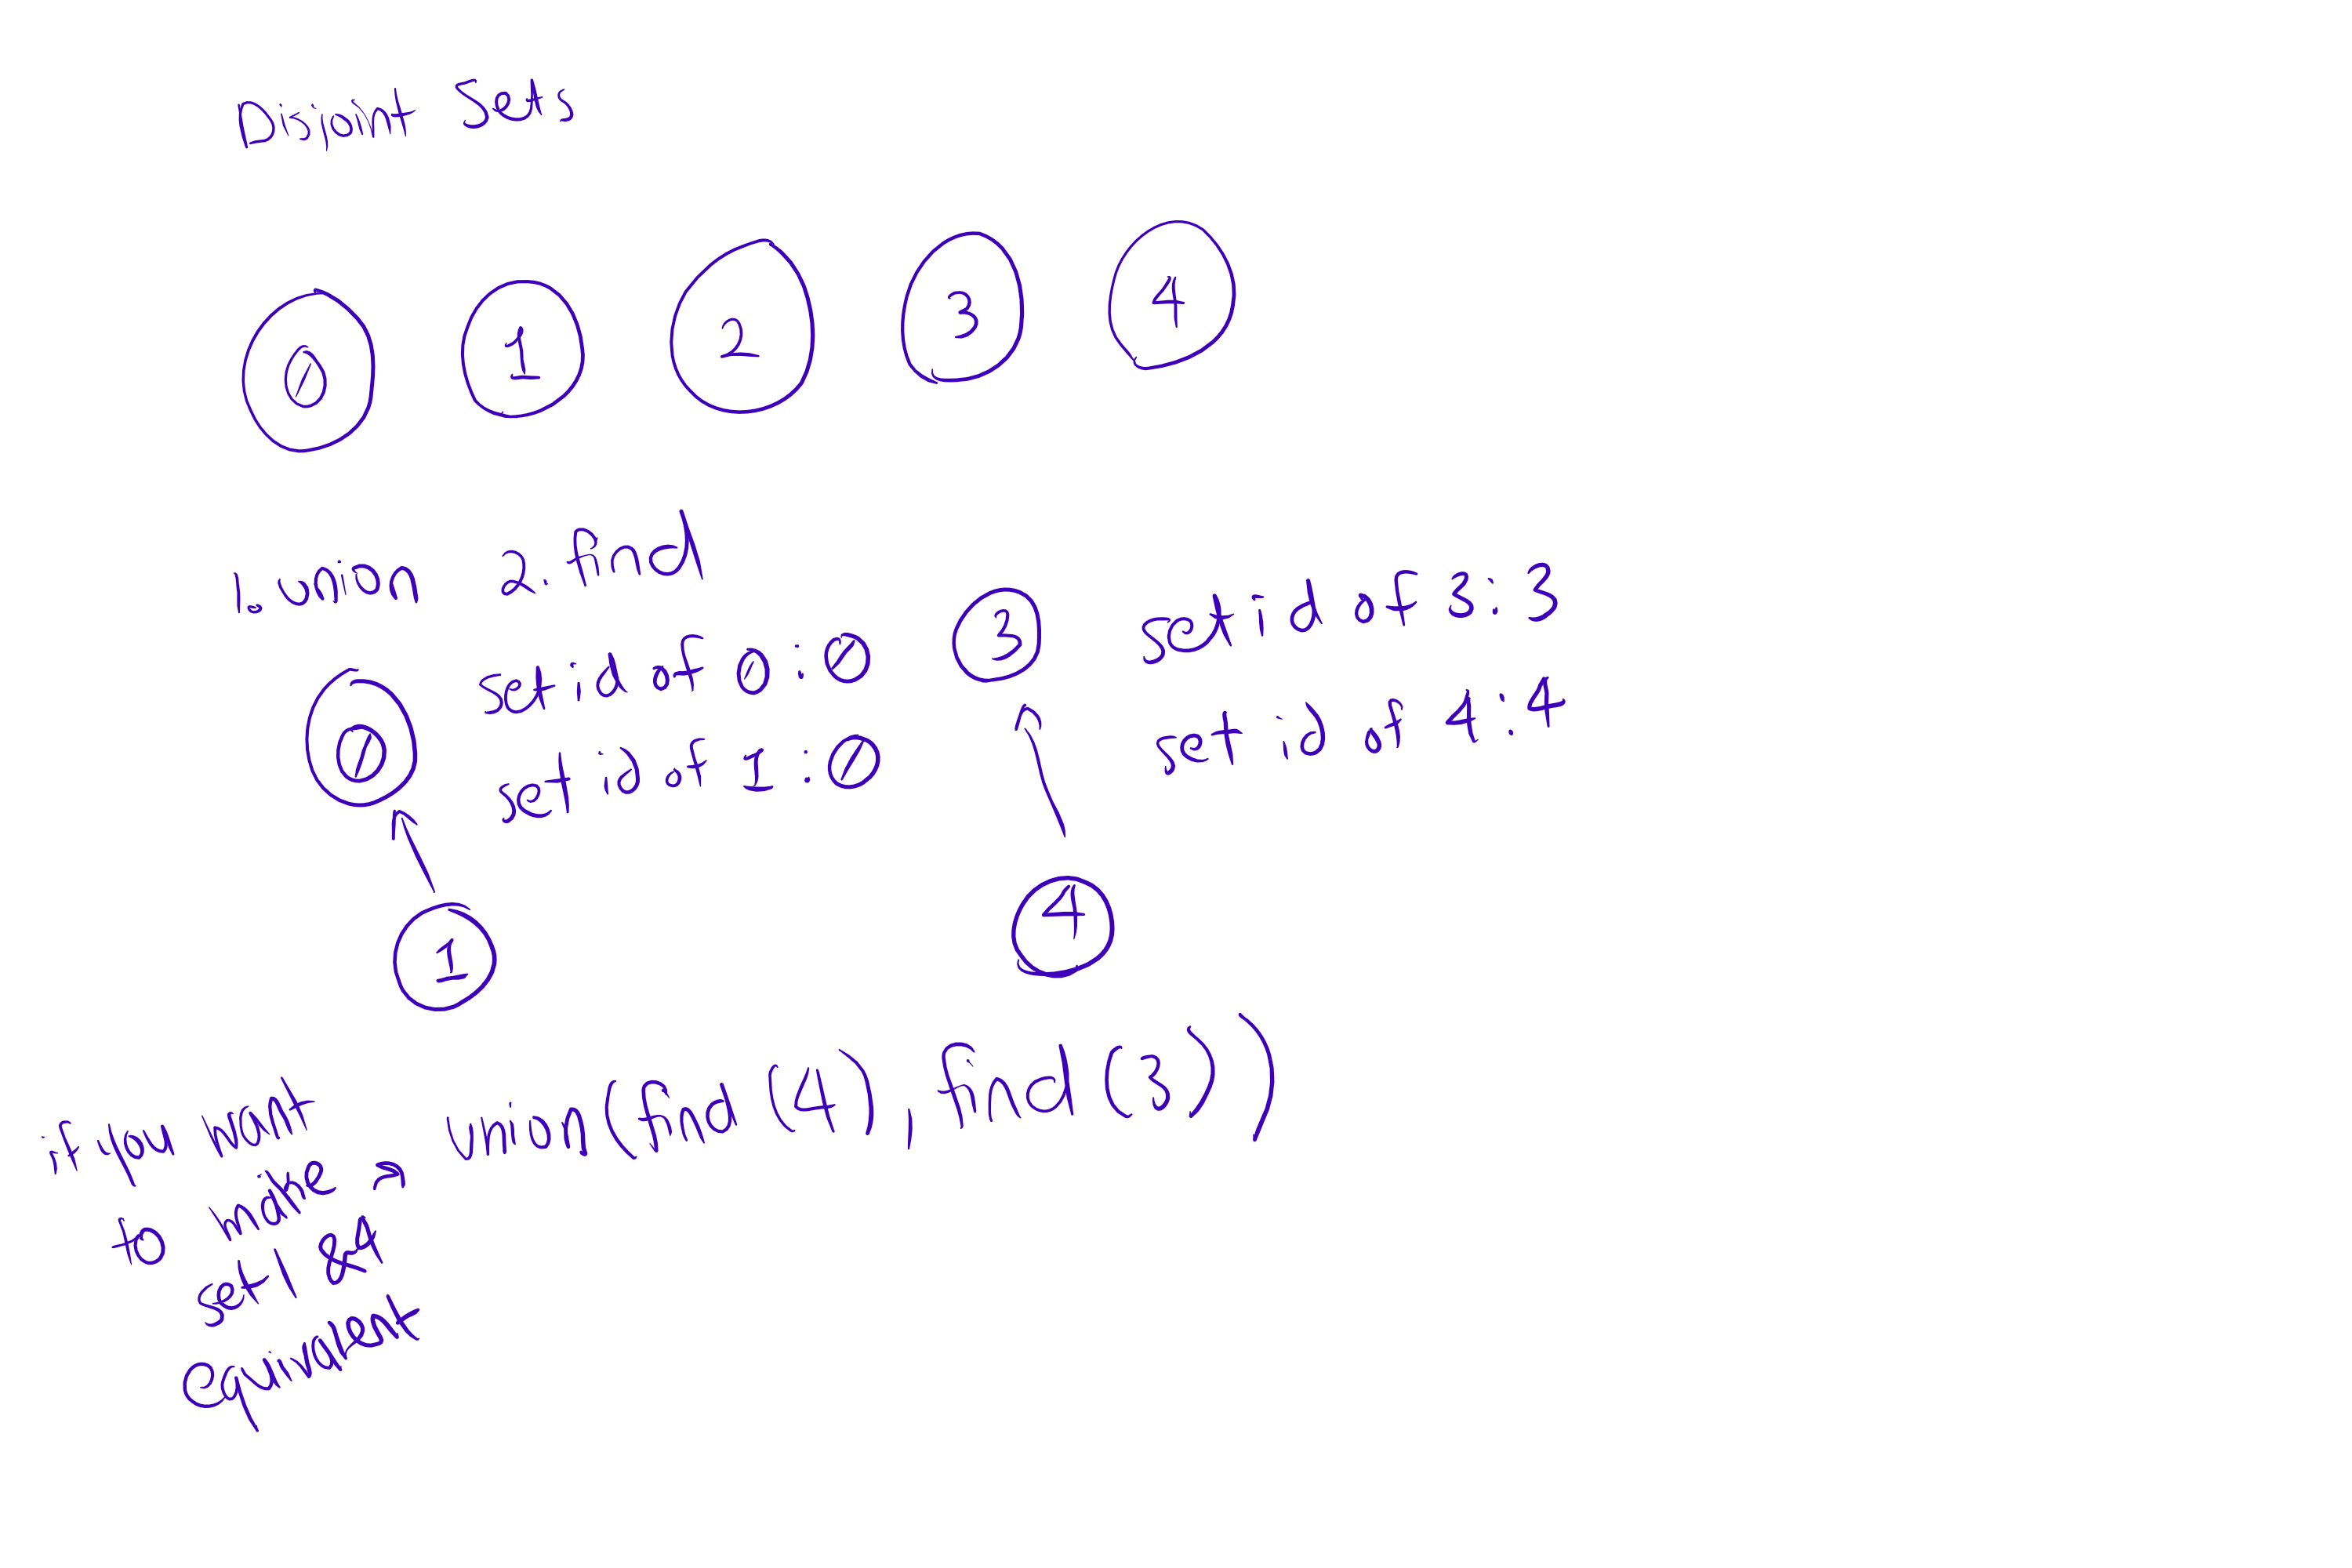 Disjoint Sets
0 1 2 3 4
1. union 2. find
0
set id of 0 : 0
set id of 1 : 0
1
3
set id of 3 : 3
set id of 4 : 4
4
if you want
to make
set 1 & 4
Equivalent
→ union(find(4), find(3))